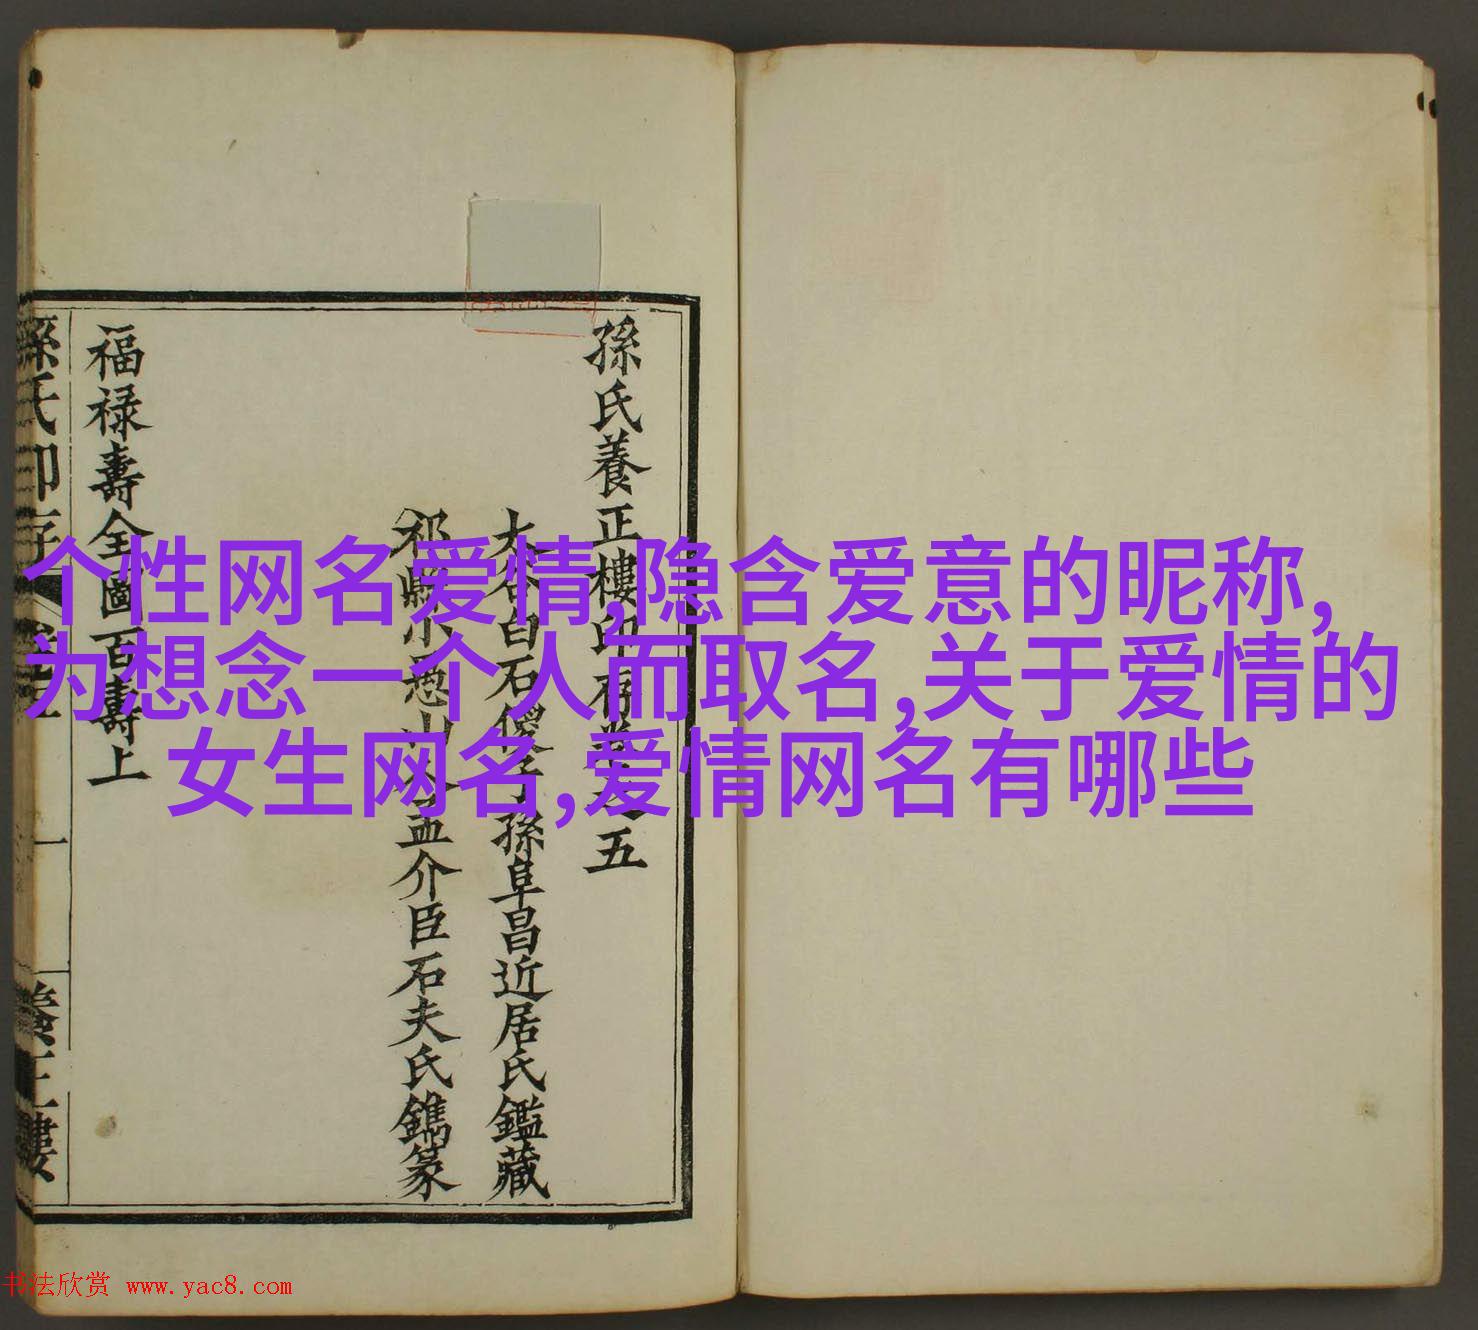 个性网名爱情,隐含爱意的昵称,
为想念一个人而取名,关于爱情的
女生网名,爱情网名有哪些
孫氏養正樓印存卷之五
太谷白石儍子孫阜昌近居氏鑑藏
祁縣小恧山人孟介臣石夫氏鐫篆
福禄壽全圖百壽上
孫氏印存
一
養正樓
书法欣赏 www.yac8.com